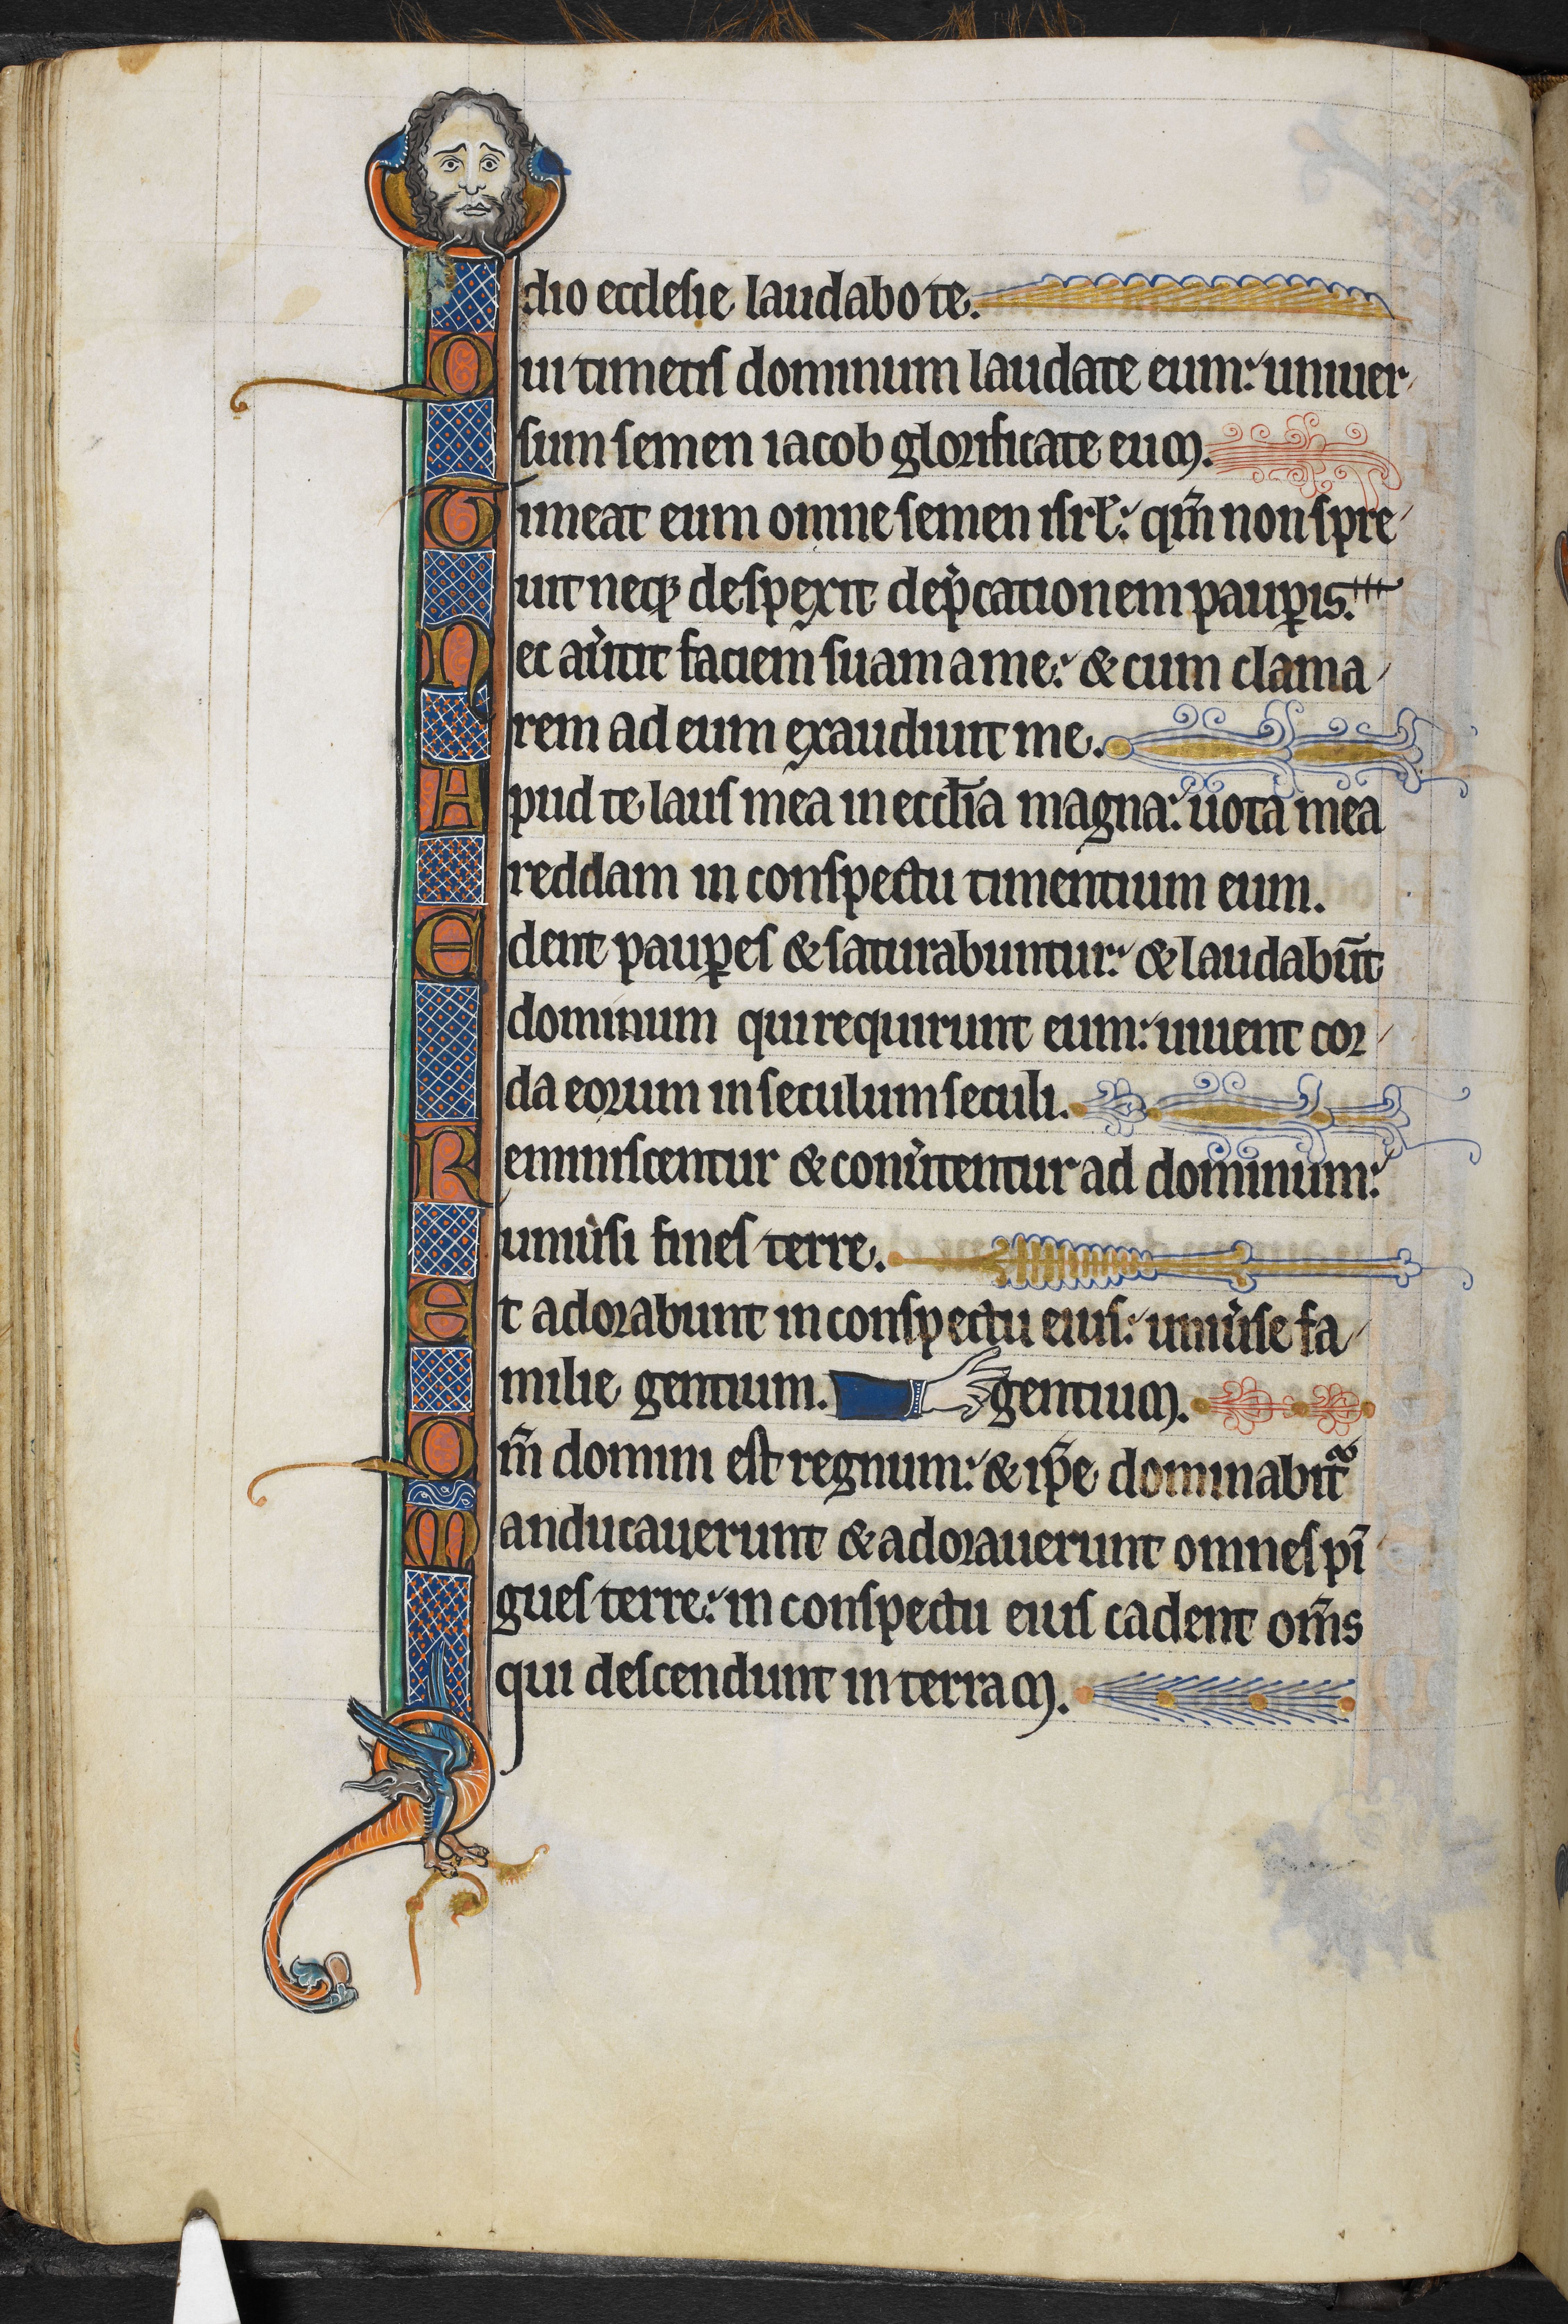 dio ecclesie laudabo te.
Qui timetis dominum laudate eum: uniuer
sum semen iacob glorificate eum.
Timeat eum omne semen isrl: qm̄ non spre
uit neqꝫ despexit dep̾cationem paup̱is.
Nec au̾tit faciem suam a me: & cum clama
rem ad eum exaudiuit me.
Apud te laus mea in eccl̄ia magna: uota mea
reddam in conspectu timentium eum.
Edent paup̱es & saturabuntur: & laudabūt
dominum qui requirunt eum: uiuent cor
da eorum in seculum seculi.
Reminiscentur & conu̾tentur ad dominum:
uniu̾si fines terre.
Et adorabunt in conspectu eius: uniu̾se fa
milie gentium. gentium.
Qm̄ domini est regnum: & ip̄e dominabit᷑
Manducauerunt & adorauerunt omnes pī
gues terre: in conspectu eius cadent om̄s
qui descendunt in terram.